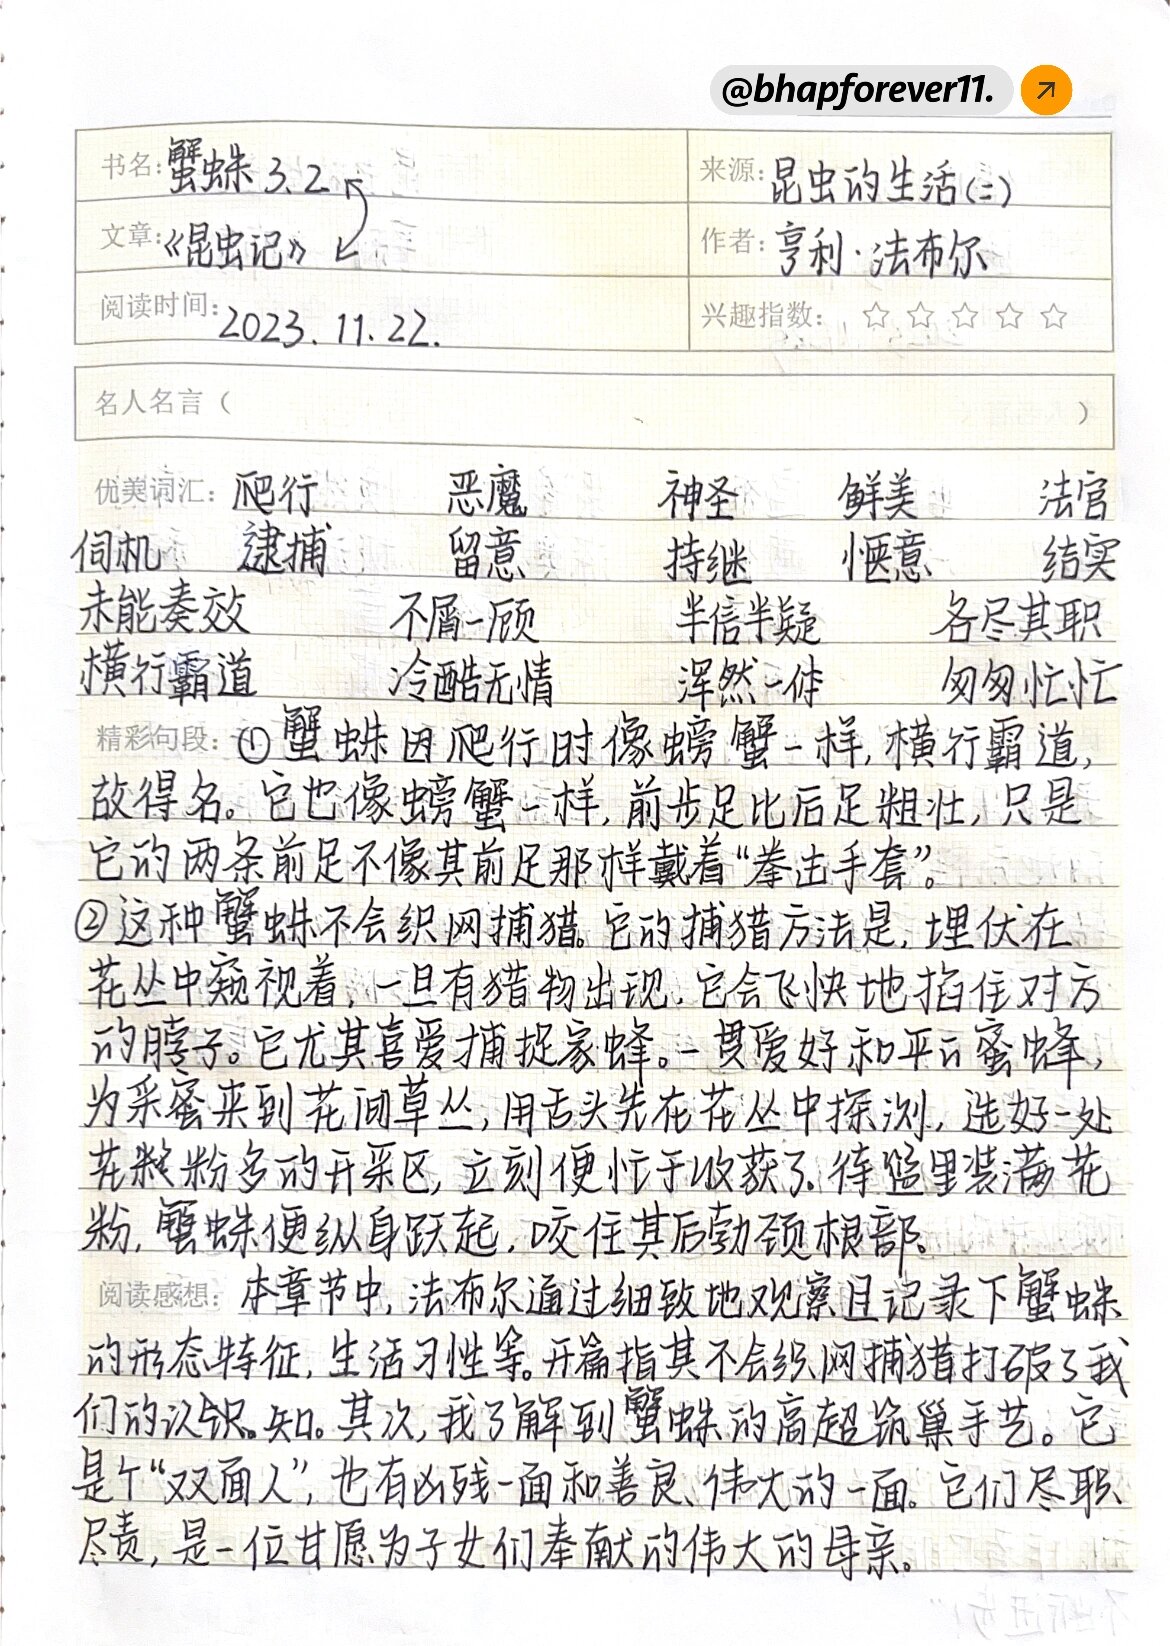 @bhapforever11.
书名:蟹蛛 3.2
来源:昆虫的生活(二)
文章:《昆虫记》
作者:亨利·法布尔
阅读时间:2023.11.22.
兴趣指数:☆☆☆☆☆
名人名言( )
优美词汇:爬行 恶魔 神圣 鲜美 法官
伺机 逮捕 留意 持继 惬意 结实
未能奏效 不屑一顾 半信半疑 各尽其职
横行霸道 冷酷无情 浑然一体 匆匆忙忙
精彩句段:①蟹蛛因爬行时像螃蟹一样,横行霸道,
故得名。它也像螃蟹一样,前步足比后足粗壮,只是
它的两条前足不像其前足那样戴着“拳击手套”。
②这种蟹蛛不会织网捕猎。它的捕猎方法是,埋伏在
花丛中窥视着,一旦有猎物出现,它会飞快地掐住对方
的脖子。它尤其喜爱捕捉家蜂。一贯爱好和平的蜜蜂,
为采蜜来到花间草丛,用舌头先在花丛中探测,选好一处
花粉多的开采区,立刻便忙于收获了。待篮里装满花
粉,蟹蛛便纵身跃起,咬住其后勃颈根部。
阅读感想:本章节中,法布尔通过细致地观察且记录下蟹蛛
的形态特征,生活习性等。开篇指其不会织网捕猎打破了我
们的认识。知。其次,我了解到蟹蛛的高超筑巢手艺。它
是个“双面人”,也有凶残一面和善良、伟大的一面。它们尽职
尽责,是一位甘愿为子女们奉献的伟大的母亲。